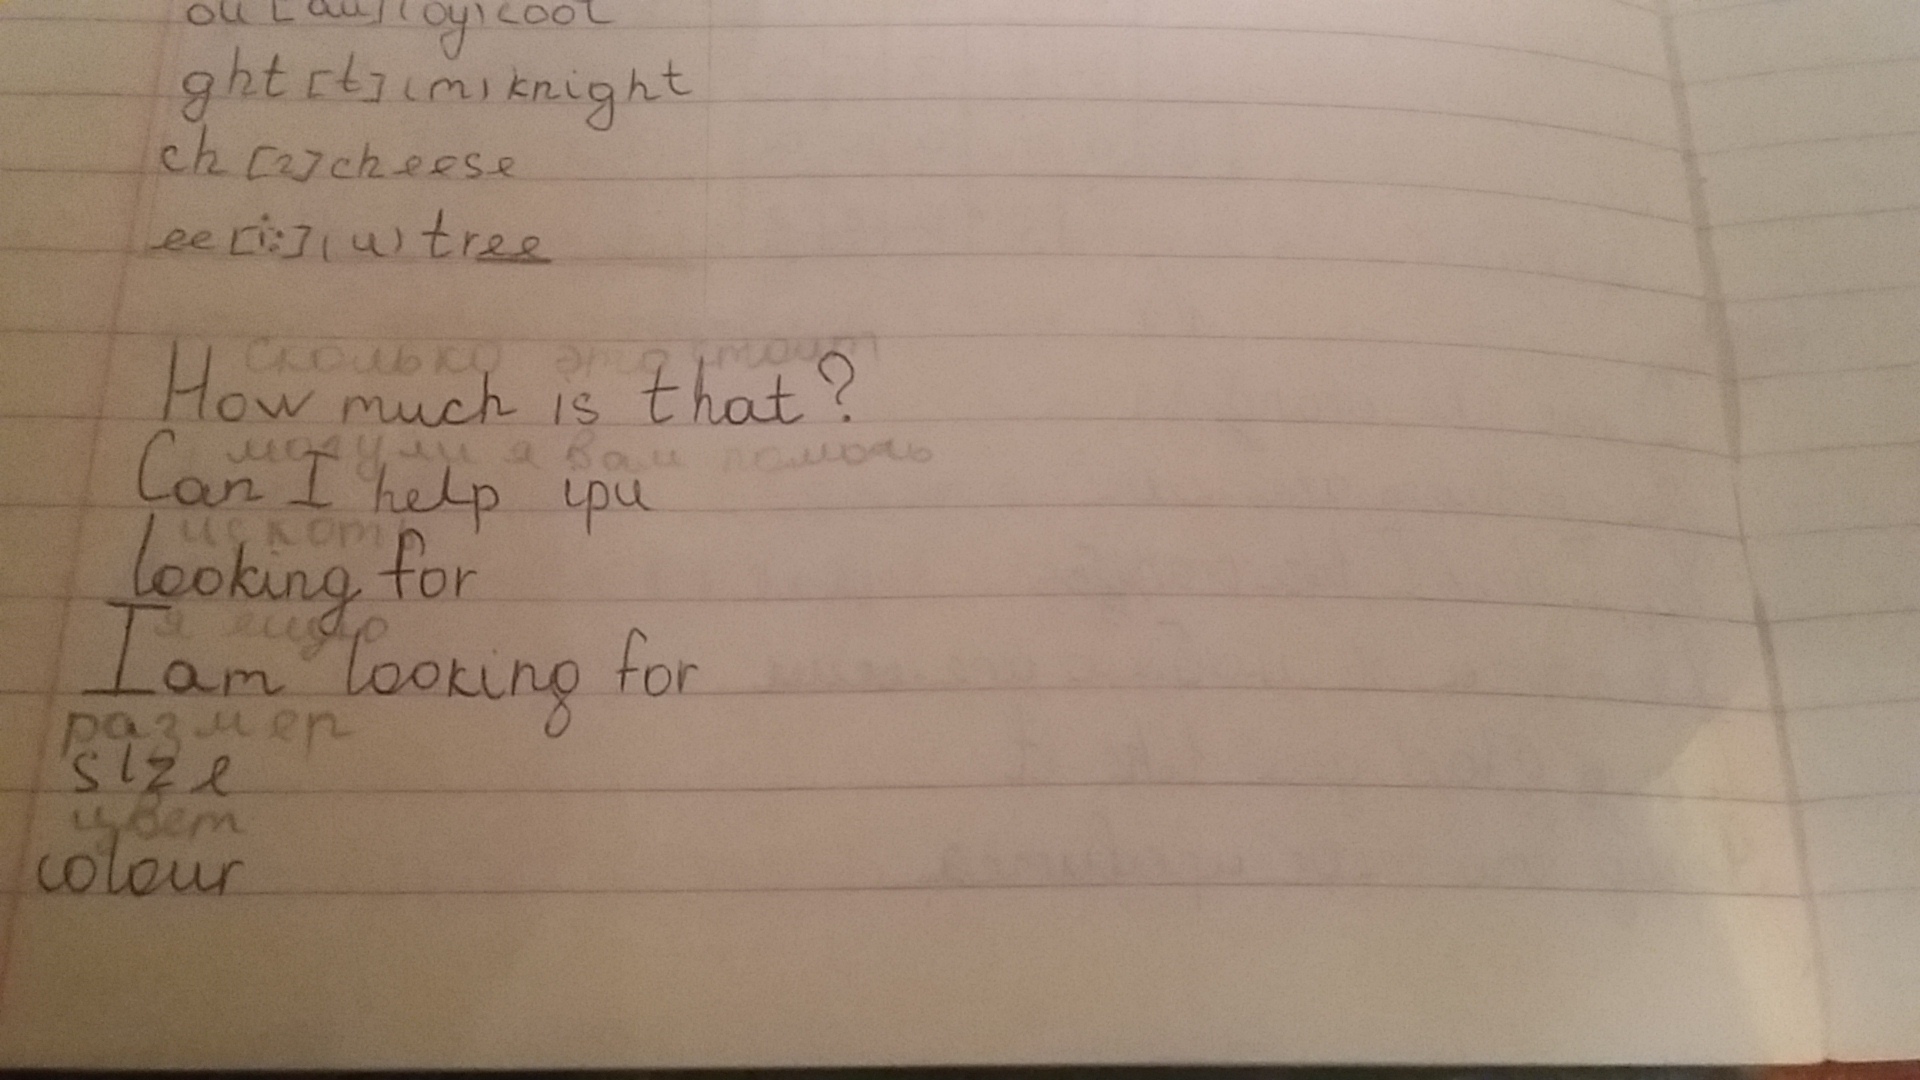 ou [au] (оу) cool
ght [t] (т) knight
ch [2] cheese
ee [i:] (и) tree
Сколько это стоит
How much is that?
могу ли я вам помочь
Can I help you
искать
looking for
я ищу
I am looking for
размер
size
цвет
colour